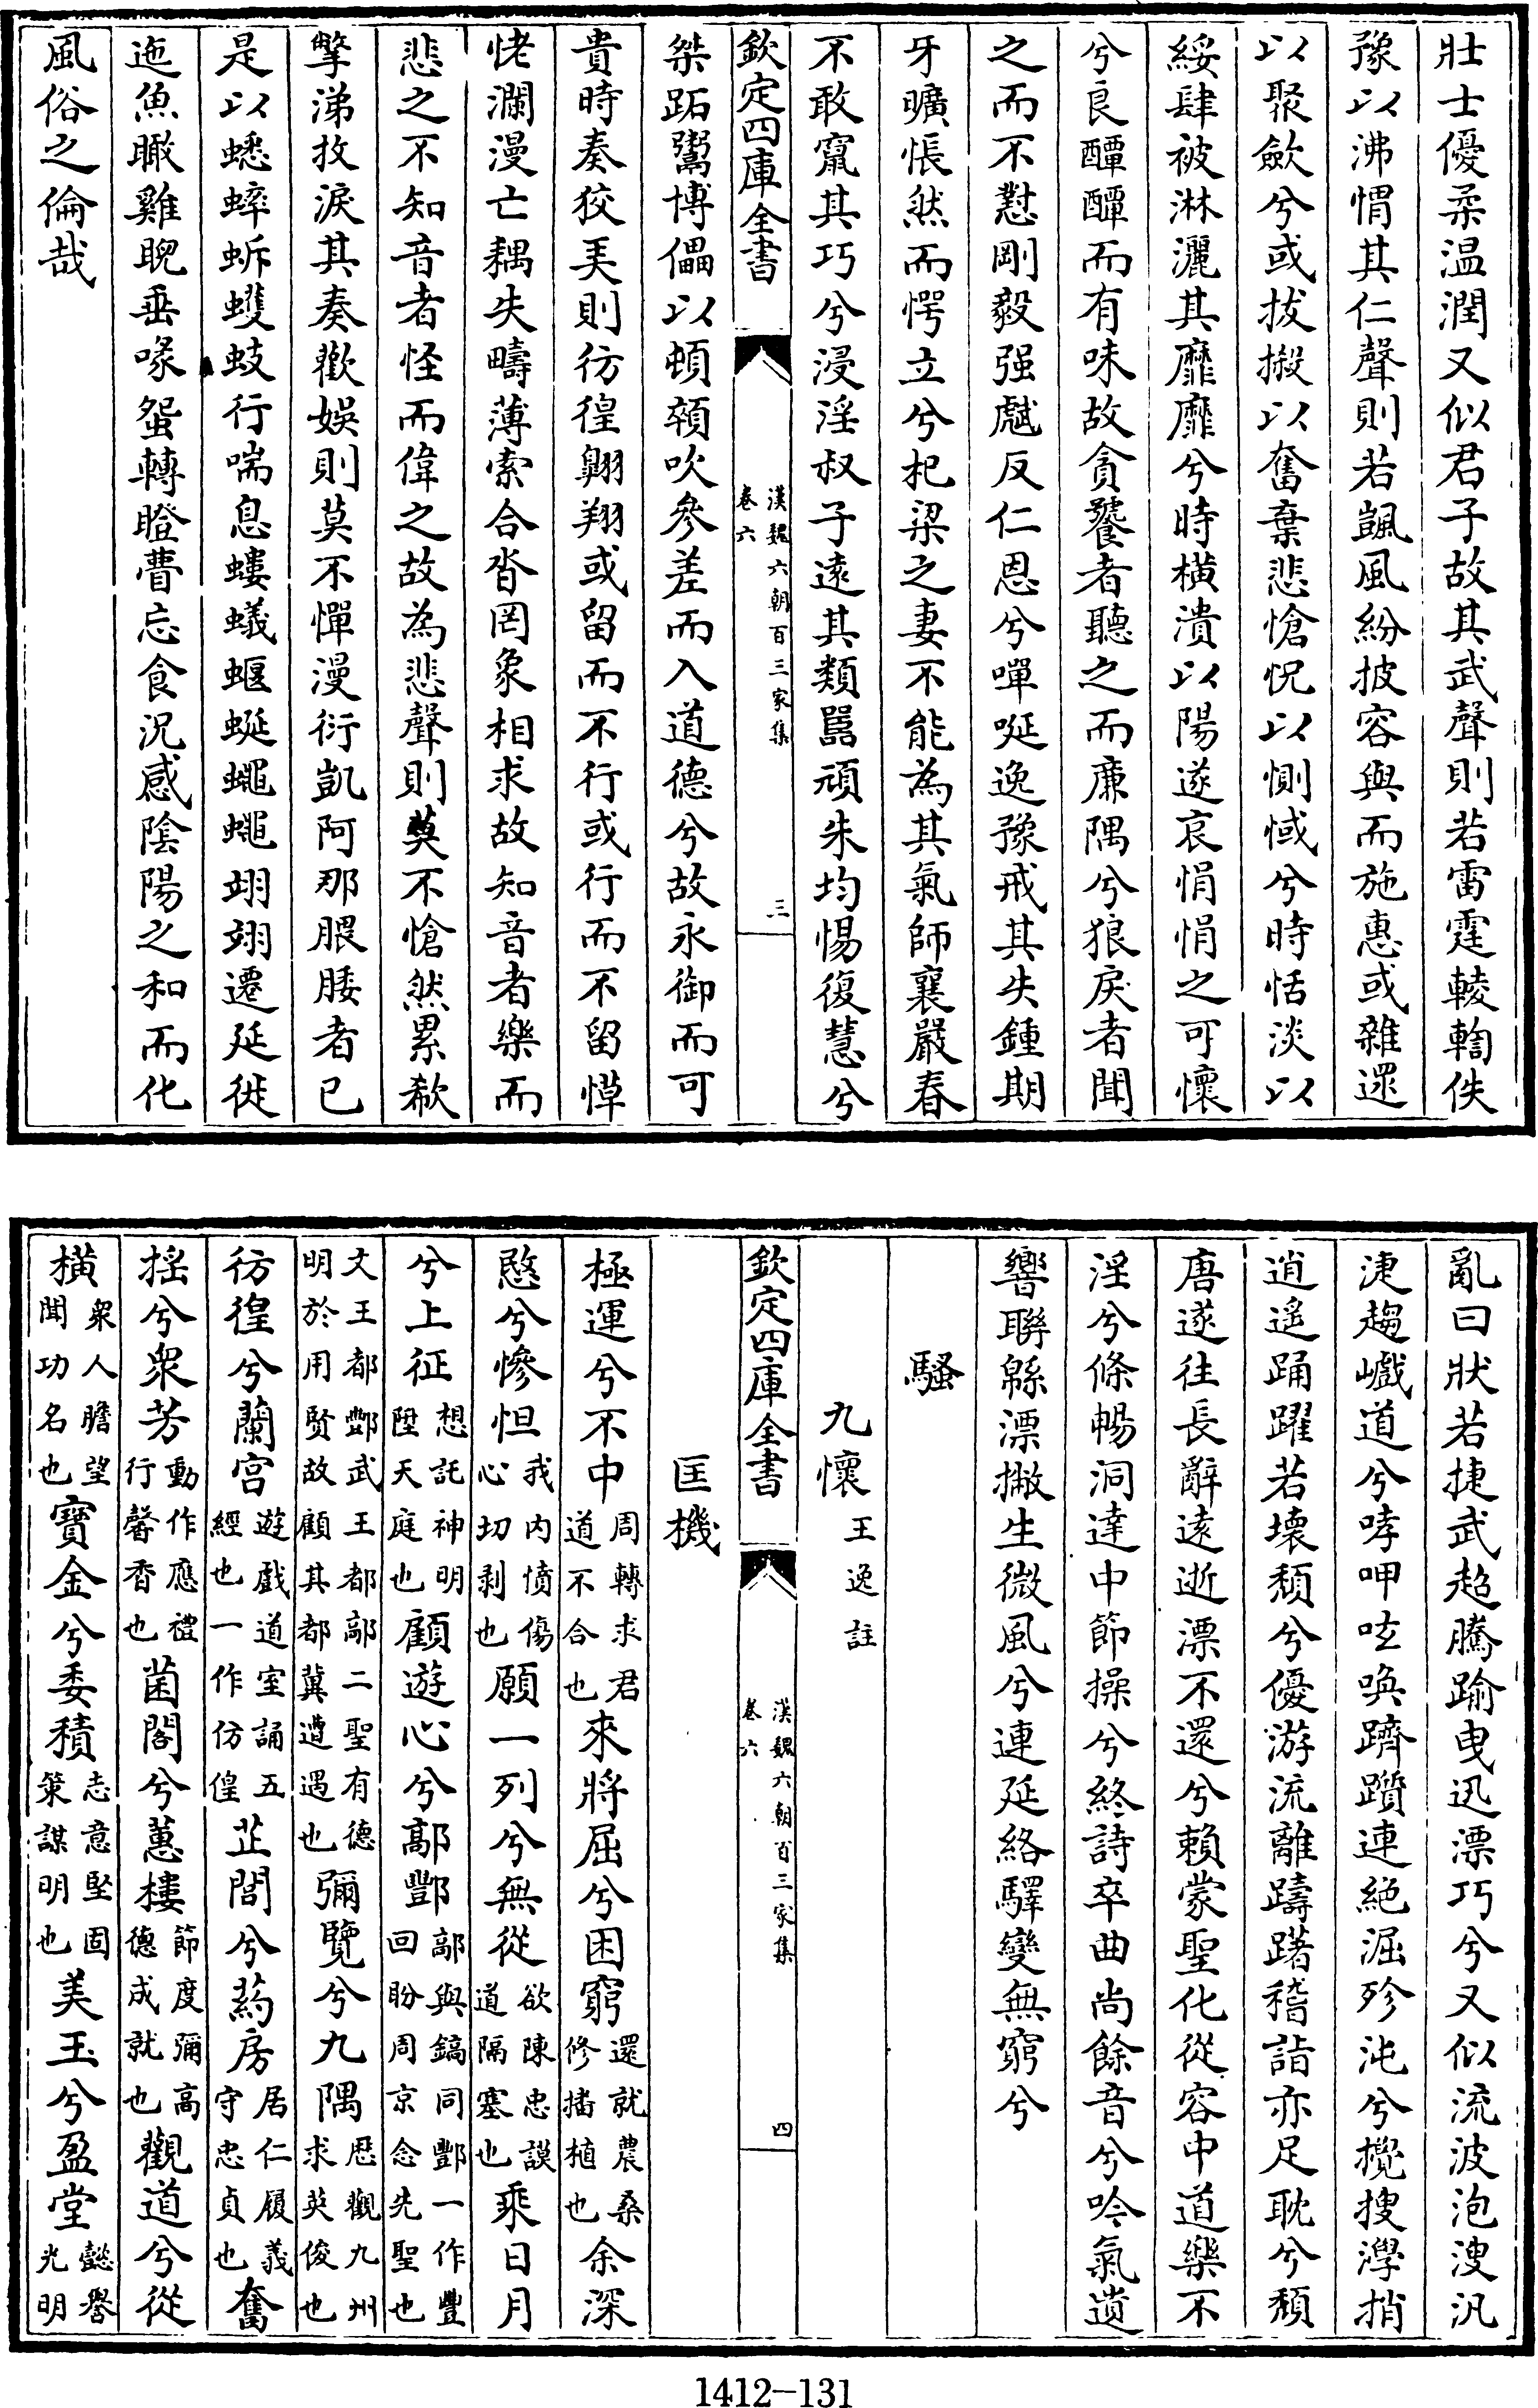 壯士優柔溫潤又似君子故其武聲則若雷霆輘輷佚
豫以沸㥜其仁聲則若颽風紛披容與而施惠或雜遝
以聚斂兮或拔摋以奮棄悲愴怳以惻惐兮時恬淡以
綏肆被淋灑其靡靡兮時橫潰以陽遂哀悁悁之可懷
兮良醰醰而有味故貪饕者聽之而廉隅兮狼戾者聞
之而不懟剛毅强虣反仁恩兮嘽唌逸豫戒其失鍾期
牙曠悵然而愕立兮杞梁之妻不能為其氣師襄嚴春
不敢竄其巧兮浸淫叔子遠其類嚚頑朱均惕復慧兮
欽定四庫全書
漢魏六朝百三家集
卷六
三
桀跖鬻博儡以頓顇吹參差而入道德兮故永御而可
貴時奏狡美則彷徨翺翔或留而不行或行而不留愺
恅瀾漫亡耦失疇薄索合沓罔象相求故知音者樂而
悲之不知音者怪而偉之故為悲聲則莫不愴然累欷
擎涕抆淚其奏歡娛則莫不憚漫衍凱阿那腲腇者已
是以蟋蟀蚸蠖蚑行喘息螻蟻蝘蜒蠅蠅翊翊遷延徙
迤魚瞰雞睨垂喙䖤轉瞪瞢忘食況感陰陽之和而化
風俗之倫哉
亂曰狀若捷武超騰踰曳迅漂巧兮又似流波泡溲汎
㳸趨巇道兮哮呷呟喚躋躓連絶淈殄沌兮攪搜㶅捎
逍遥踊躍若壞頹兮優游流離躊躇稽詣亦足耽兮頹
唐遂往長辭遠逝漂不還兮賴蒙聖化從容中道樂不
淫兮條暢洞達中節操兮終詩卒曲尚餘音兮吟氣遺
響聯緜漂撇生微風兮連延絡驛變無窮兮
騷
九懷 王逸註
欽定四庫全書
漢魏六朝百三家集
卷六
四
匡機
極運兮不中周轉求君道不合也來將屈兮困窮還就農桑修播植也余深
愍兮慘怛我内憤傷心切剥也願一列兮無從欲陳忠謨道隔塞也乘日月
兮上征想託神明陞天庭也顧遊心兮鄗酆鄗與鎬同酆一作豐回盼周京念先聖也
文王都酆武王都鄗二聖有德明於用賢故顧其都冀遭遇也彌覽兮九隅歷觀九州求英俊也
彷徨兮蘭宫遊戲道室誦五經也一作仿偟芷閭兮葯房居仁履義守忠貞也奮
揺兮衆芳動作應禮行馨香也菌閣兮蕙樓節度彌高德成就也觀道兮從
橫衆人瞻望聞功名也寶金兮委積志意堅固策謀明也美玉兮盈堂懿譽光明
1412-131